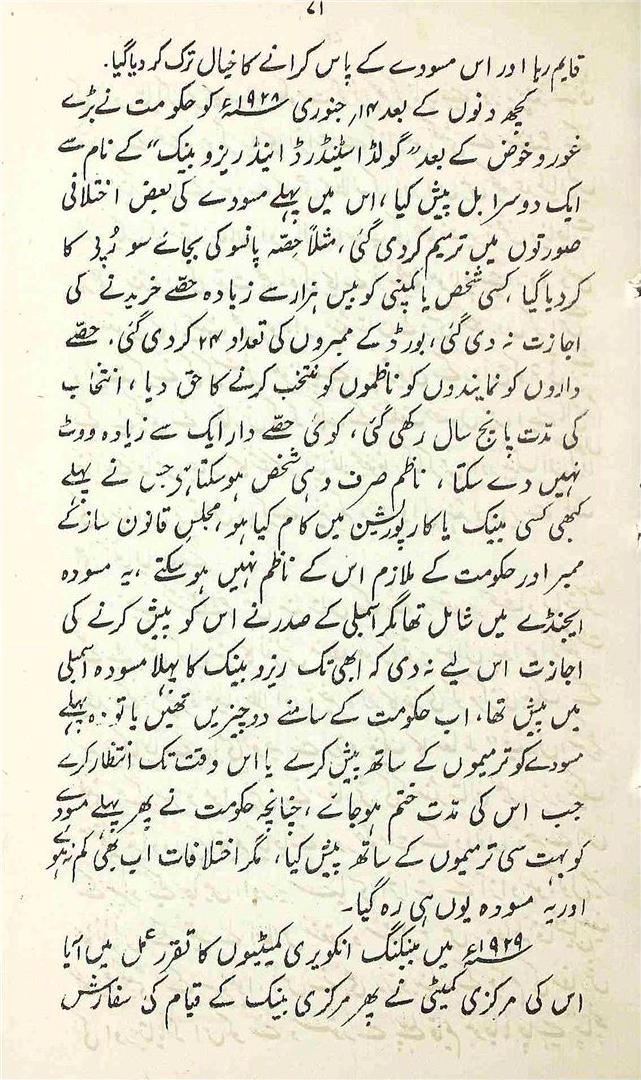 ۷۱
قایم رہا اور اس مسودے کے پاس کرانے کا خیال ترک کر دیا گیا۔
کچھ دنوں کے بعد ۱۴؍ جنوری ۱۹۲۸ء کو حکومت نے بڑے
غور و خوض کے بعد "گولڈ اسٹینڈرڈ اینڈ ریزرو بینک" کے نام سے
ایک دوسرا بل پیش کیا، اس میں پہلے مسودے کی بعض اختلافی
صورتوں میں ترمیم کردی گئی، مثلاً حصّہ پانسو کی بجائے سو رُپی کا
کردیا گیا، کسی شخص یا کمپنی کو بیس ہزار سے زیادہ حصّے خریدنے کی
اجازت نہ دی گئی، بورڈ کے ممبروں کی تعداد ۲۴ کردی گئی، حصّے
داروں کو نمایندوں کو ناظموں کو منتخب کرنے کا حق دیا، انتخاب
کی مدّت پانچ سال رکھی گئی، کوئی حصّے دار ایک سے زیادہ ووٹ
نہیں دے سکتا، ناظم صرف وہی شخص ہوسکتا ہی جس نے پہلے
کبھی کسی بینک یا کارپوریشن میں کام کیا ہو، مجلسِ قانون ساز کے
ممبر اور حکومت کے ملازم اس کے ناظم نہیں ہوسکتے، یہ مسودہ
ایجنڈے میں شامل تھا مگر اسمبلی کے صدر نے اس کو پیش کرنے کی
اجازت اس لیے نہ دی کہ ابھی تک ریزرو بینک کا پہلا مسودہ اسمبلی
میں پیش تھا، اب حکومت کے سامنے دو چیزیں تھیں یا تو وہ پہلے
مسودے کو ترمیموں کے ساتھ پیش کرے یا اس وقت تک انتظار کرے
جب اس کی مدّت ختم ہوجائے، چنانچہ حکومت نے پھر پہلے مسودے
کو بہت سی ترمیموں کے ساتھ پیش کیا، مگر اختلافات اب بھی کم نہ ہوئے
اور یہ مسودہ یوں ہی رہ گیا۔
۱۹۲۹ء میں بینکنگ انکویری کمیٹیوں کا تقرر عمل میں آیا
اس کی مرکزی کمیٹی نے پھر مرکزی بینک کے قیام کی سفارش